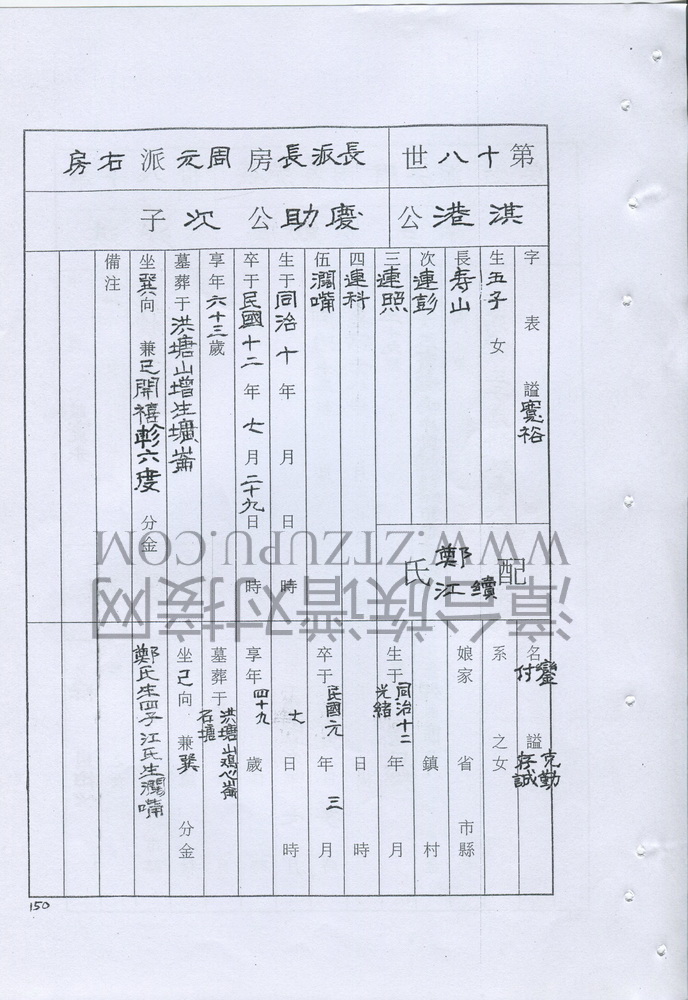 第十八世
長派長房周元派右房
淇港公
慶助公次子
字 表 諡寬裕
生五子 女
長寿山
次連彭
三連照
四連科
伍瀾嘴
生于同治十年 月 日 時
卒于民國十二年七月二十九日 時
享年六十三歲
墓葬于洪塘山增生壙崙
坐巽向 兼巳開禧軫六度 分金
備注
配鄭 續江氏
名 諡克勤
付 存誠
系 之女
娘家 省 市縣
鎮 村
生于同治十二 年 月
光緒
日 時
卒于民國元年三月
七日 時
享年四十九歲
墓葬于洪塘山鸡心崙
石墻
坐巳向 兼巽 分金
鄭氏生四子江氏生瀾嘴
150
WWW.ZTZUPU.COM
漳台族谱对接网